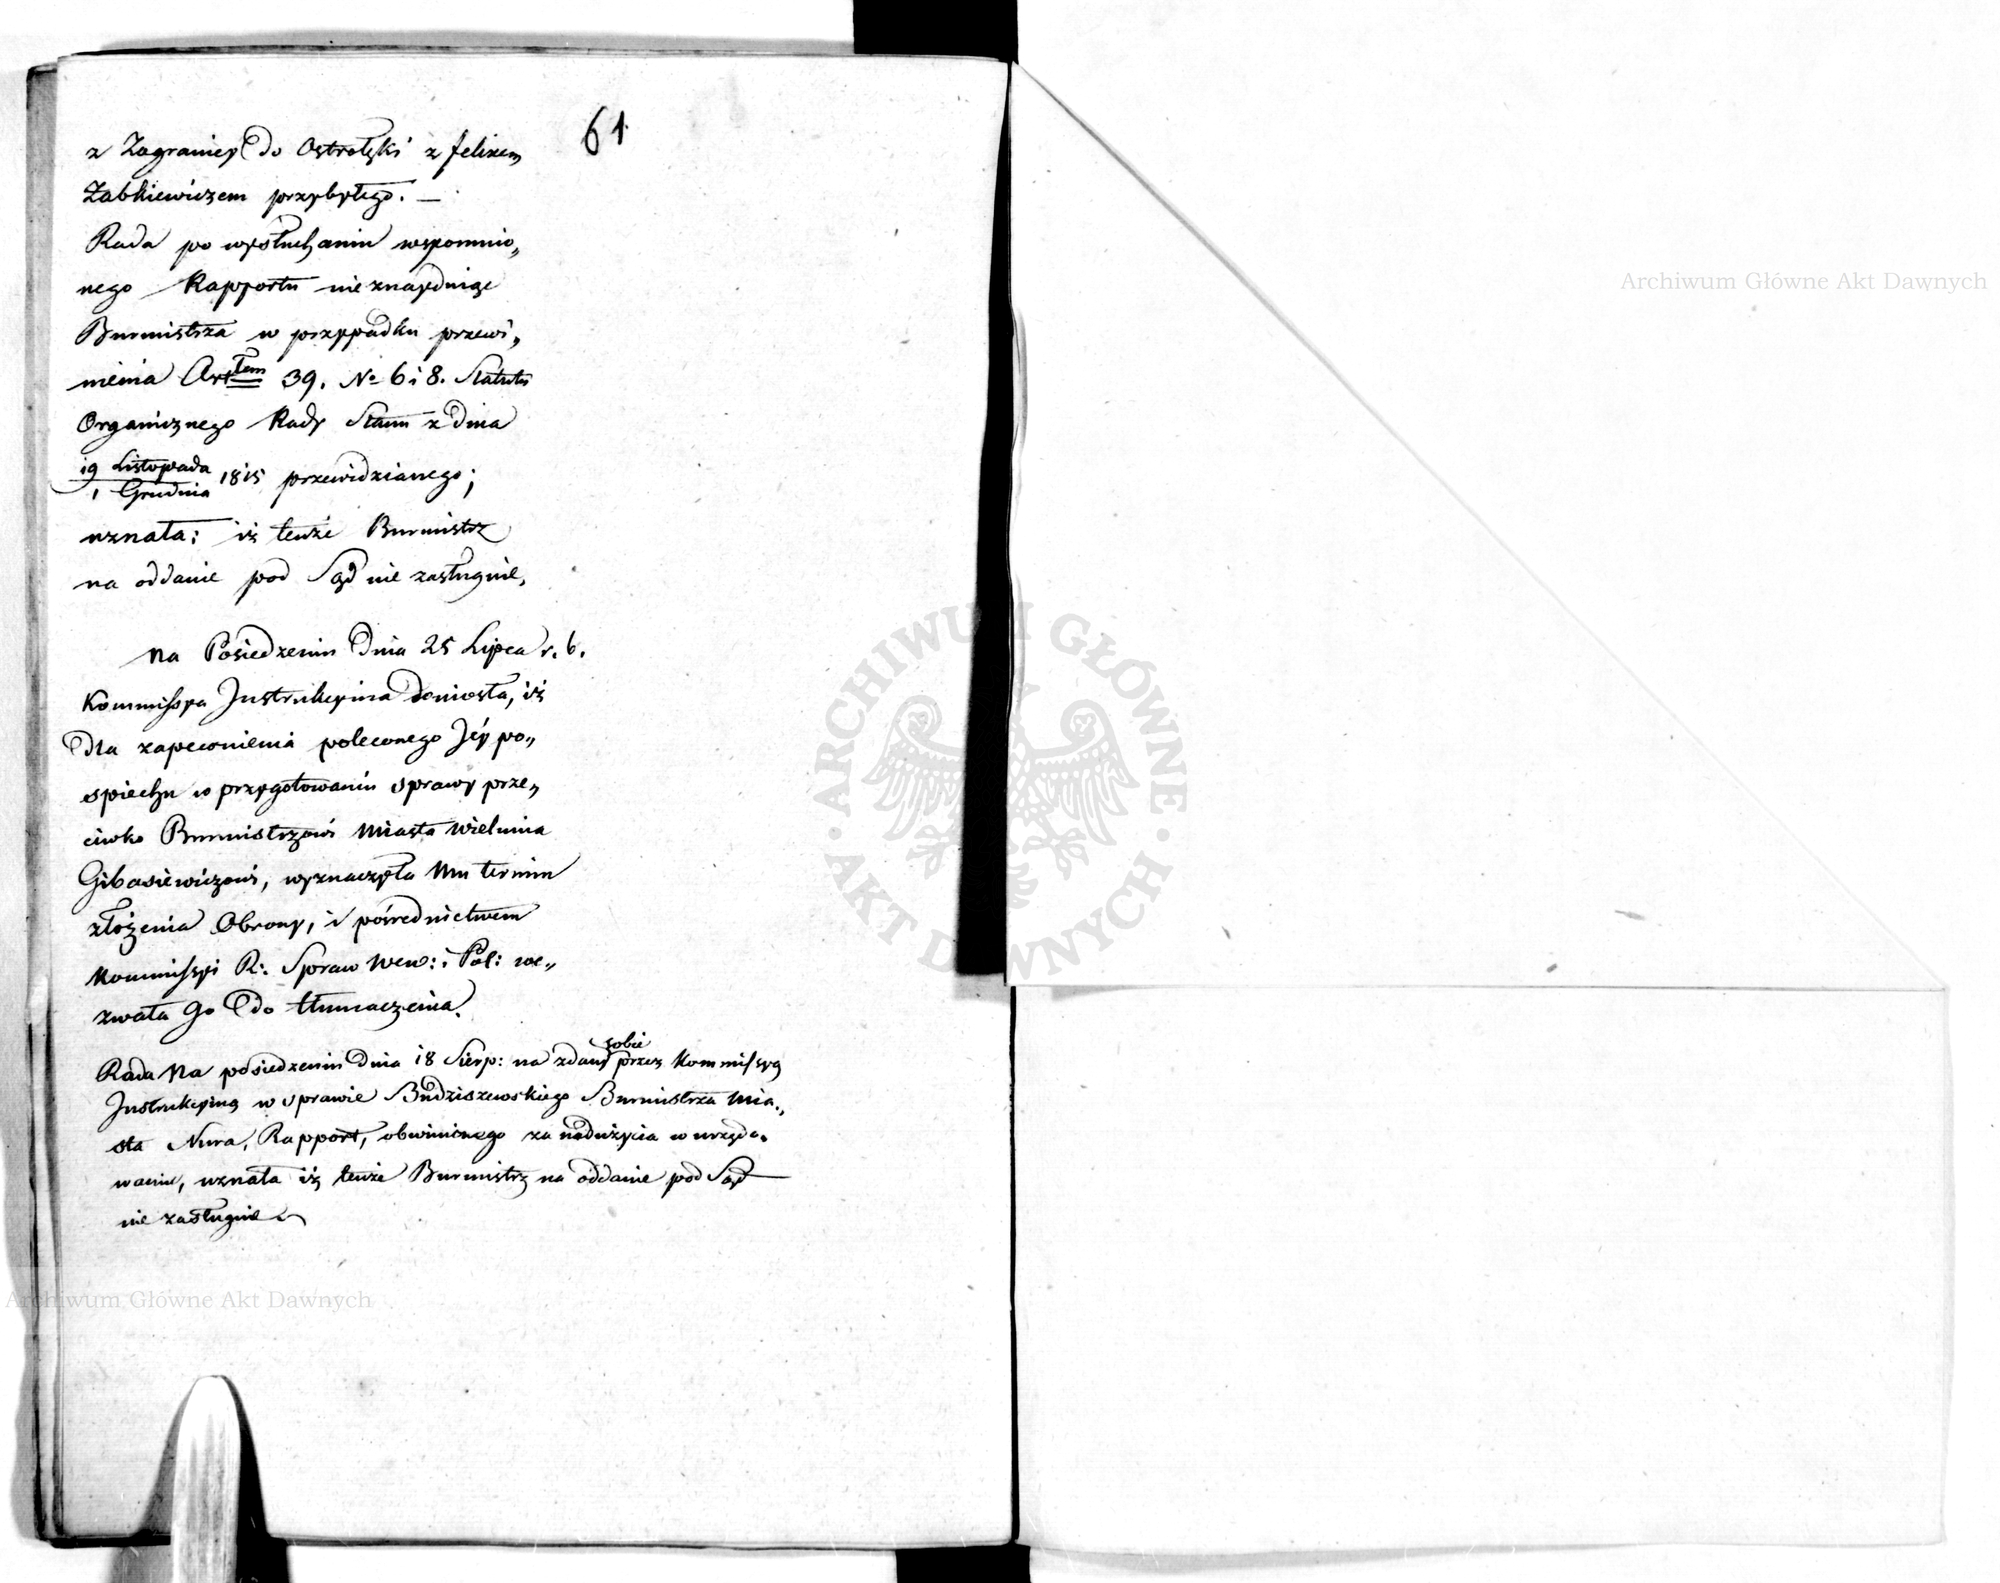 61
z Zagranicy do Ostrołęki z felixem
Żabkiewiczem przybyłego. —
Rada po wysłuchaniu wspomnio„
nego Rapportu nieznayduiąc
Burmistrza w przypadku przewi„
nienia Art<sup>łem</sup> 39. No 6 i 8. Statutu
Organicznego Rady Stanu z dnia
19 Listopada
1 Grudnia 1815 przewidzianego;
uznała: iż tenże Burmistrz
na oddanie pod Sąd nie zasługuie,
Na Posiedzeniu Dnia 25 Lipca r. b.
Kommissya Instrukcyina doniosła, iż
Dla zapewnienia poleconego Jéy po„
spiechu w przygotowaniu sprawy prze„
ciwko Burmistrzowi Miasta Wielunia
Gibasiewiczowi, wyznaczyła Mu termin
złożenia Obrony, i pośrednictwem
Kommissyi R: Spraw Wew: i Pol: we„
zwała Go do tłumaczenia.
Rada Na posiedzeniu Dnia 18 Sierp: na zdany sobie przez Kommissyą
Instrukcyiną w sprawie Budziszewskiego Burmistrza Mia„
sta Nura, Rapport, obwinionego za nadużycia w urzędo„
waniu, uznała iż tenże Burmistrz na oddanie pod Sąd
nie zasługuie
Archiwum Główne Akt Dawnych
ARCHIWUM GŁÓWNE · AKT DAWNYCH ·
Archiwum Główne Akt Dawnych